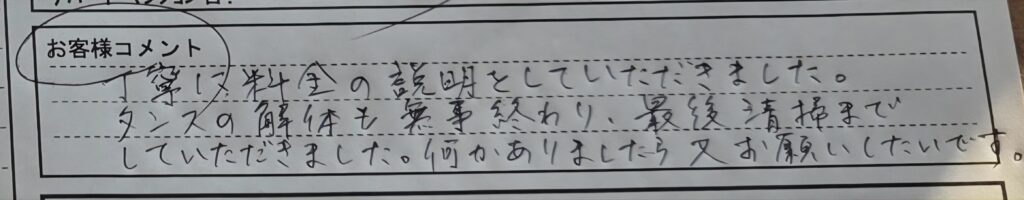 お客様コメント
丁寧に料金の説明をしていただきました。
タンスの解体も無事終わり、最後清掃まで
していただきました。何かありましたら又お願いしたいです。